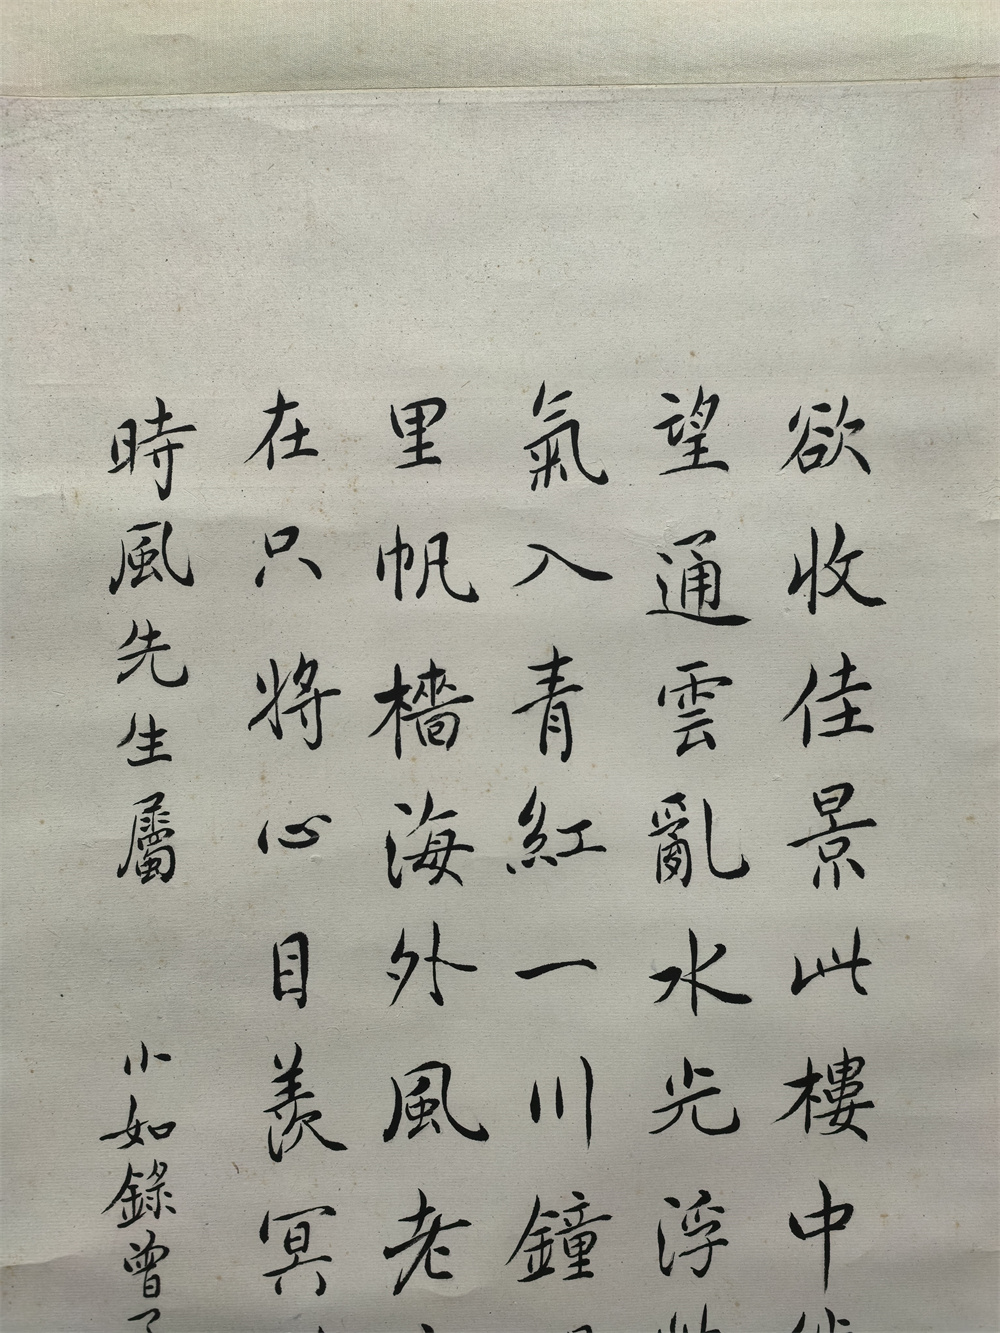 欲收佳景此樓中
望通雲亂水光浮
氣入青紅一川鐘
里帆檣海外風老
在只將心目羨冥
時風先生屬
小如錄曾